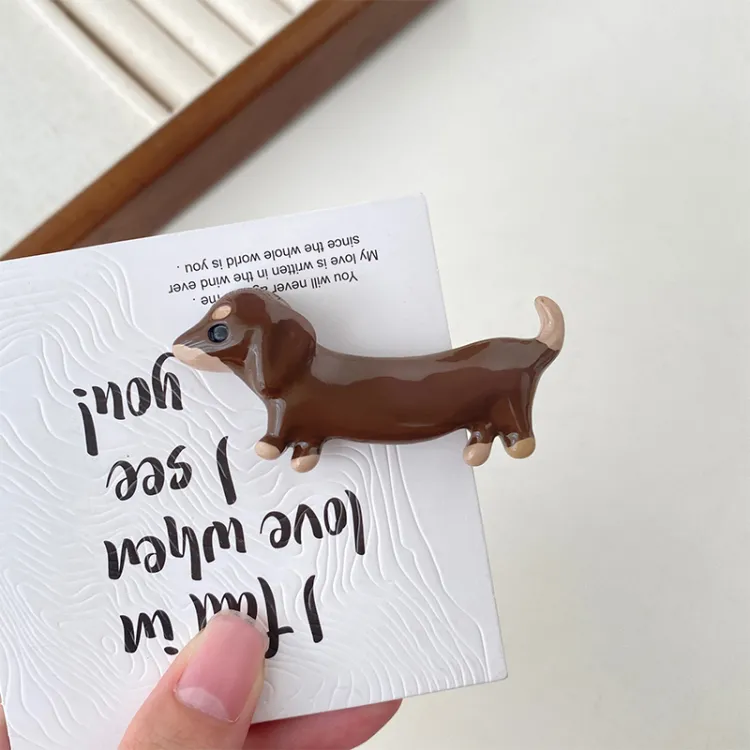 I fall in
love when
I see
you!
You will never me .
My love is written in the wind ever
since the whole world is you .